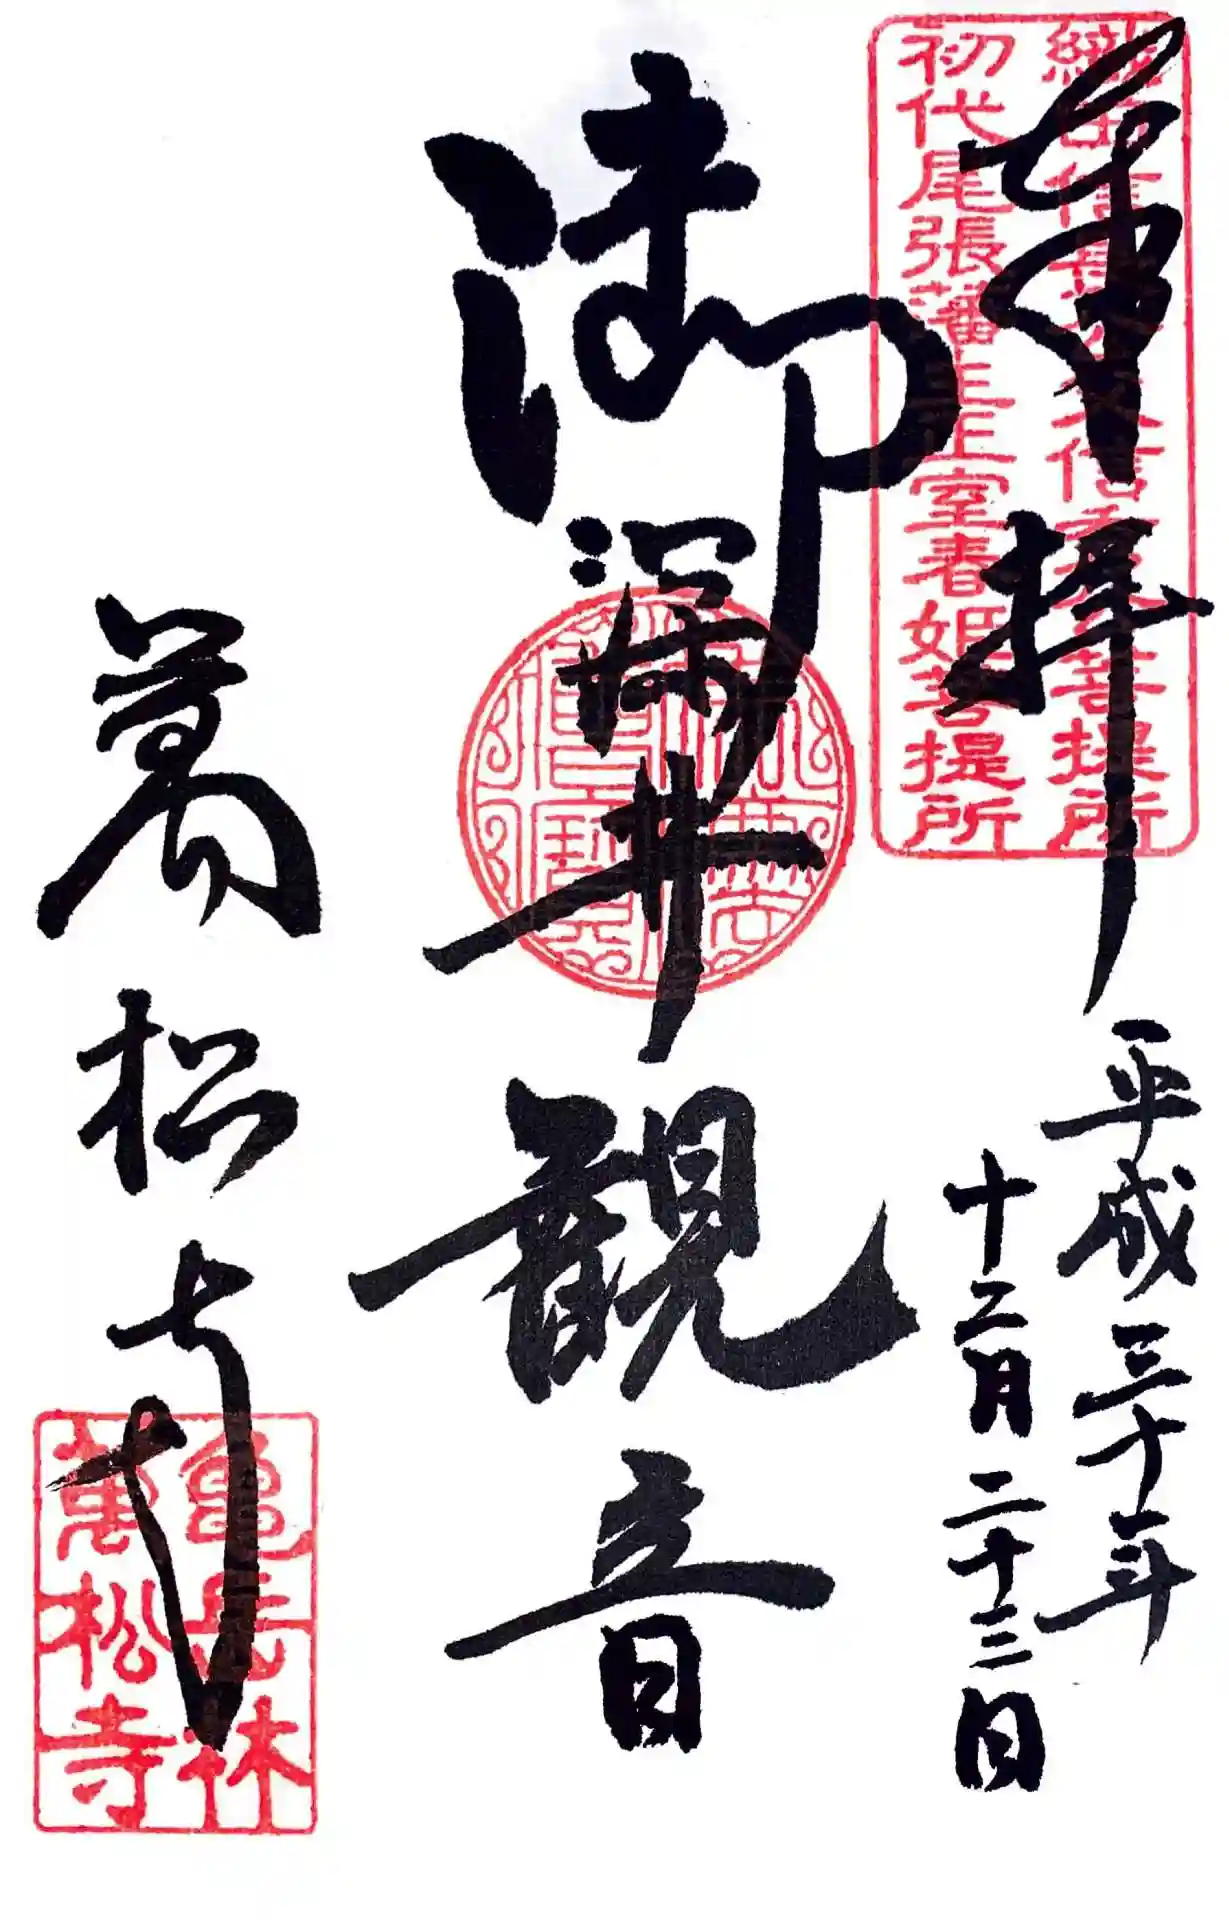 織田信長公父信秀公菩提所
初代尾張藩主正室春姫菩提所
奉拝
平成三十年
十二月二十三日
御満井観音
萬松寺
亀岳林
萬松寺